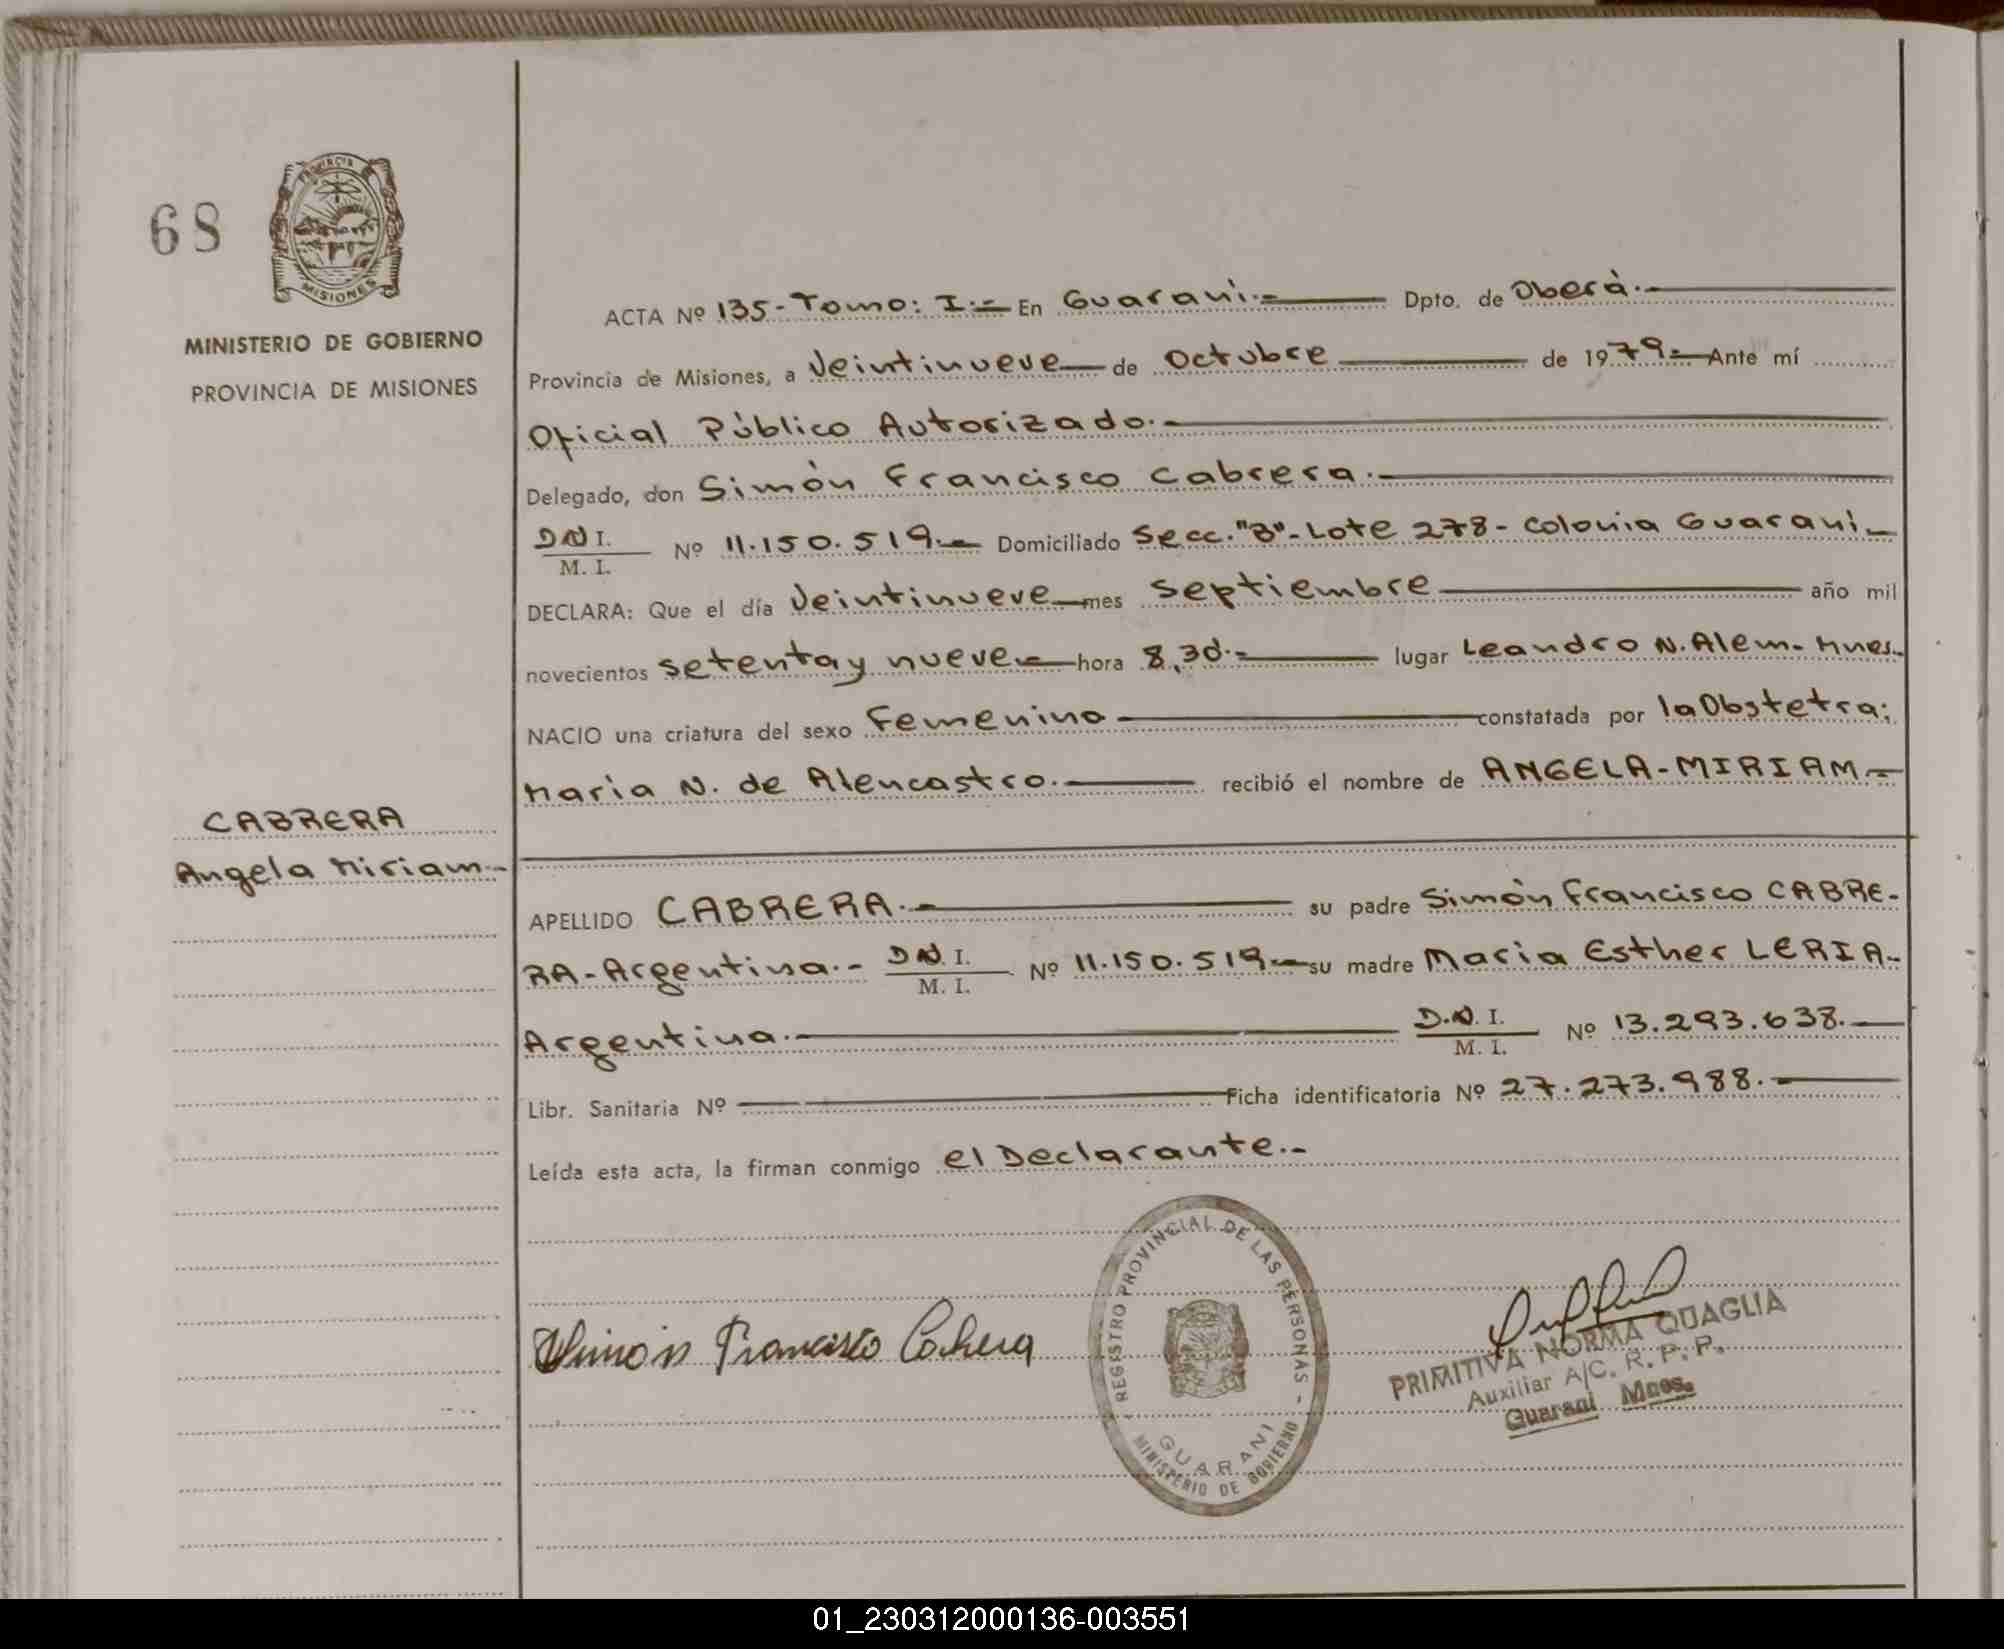 68
PROVINCIA
MISIONES
MINISTERIO DE GOBIERNO
PROVINCIA DE MISIONES
CABRERA
Angela Miriam.-
ACTA Nº 135-Tomo: I.- En Guaraní.- Dpto. de Oberá.-
Provincia de Misiones, a Veintinueve de Octubre de 1979.- Ante mí
Oficial Público Autorizado.-
Delegado, don Simón Francisco Cabrera.-
D.N.I.
M. I. Nº 11.150.519.- Domiciliado Secc."B"-Lote 278-Colonia Guaraní-
DECLARA: Que el día Veintinueve mes Septiembre año mil
novecientos setenta y nueve.- hora 8,30.- lugar Leandro N. Alem.- Mnes.-
NACIO una criatura del sexo Femenino constatada por la Obstetra;
Maria N. de Alencastro.- recibió el nombre de ANGELA-MIRIAM.-
APELLIDO CABRERA.- su padre Simón Francisco CABRE-
RA-Argentina.- D.N.I.
M. I. Nº 11.150.519.- su madre Maria Esther LERIA-
Argentina.- D.N.I.
M. I. Nº 13.293.638.-
Libr. Sanitaria Nº Ficha identificatoria Nº 27.273.988.-
Leída esta acta, la firman conmigo el Declarante.-
Simón Francisco Cabrera
REGISTRO PROVINCIAL DE LAS PERSONAS -
GUARANI
MINISTERIO DE GOBIERNO
PRIMITIVA NORMA QUAGLIA
Auxiliar A/C. R. P. P.
Guaraní Mnes.
01_230312000136-003551